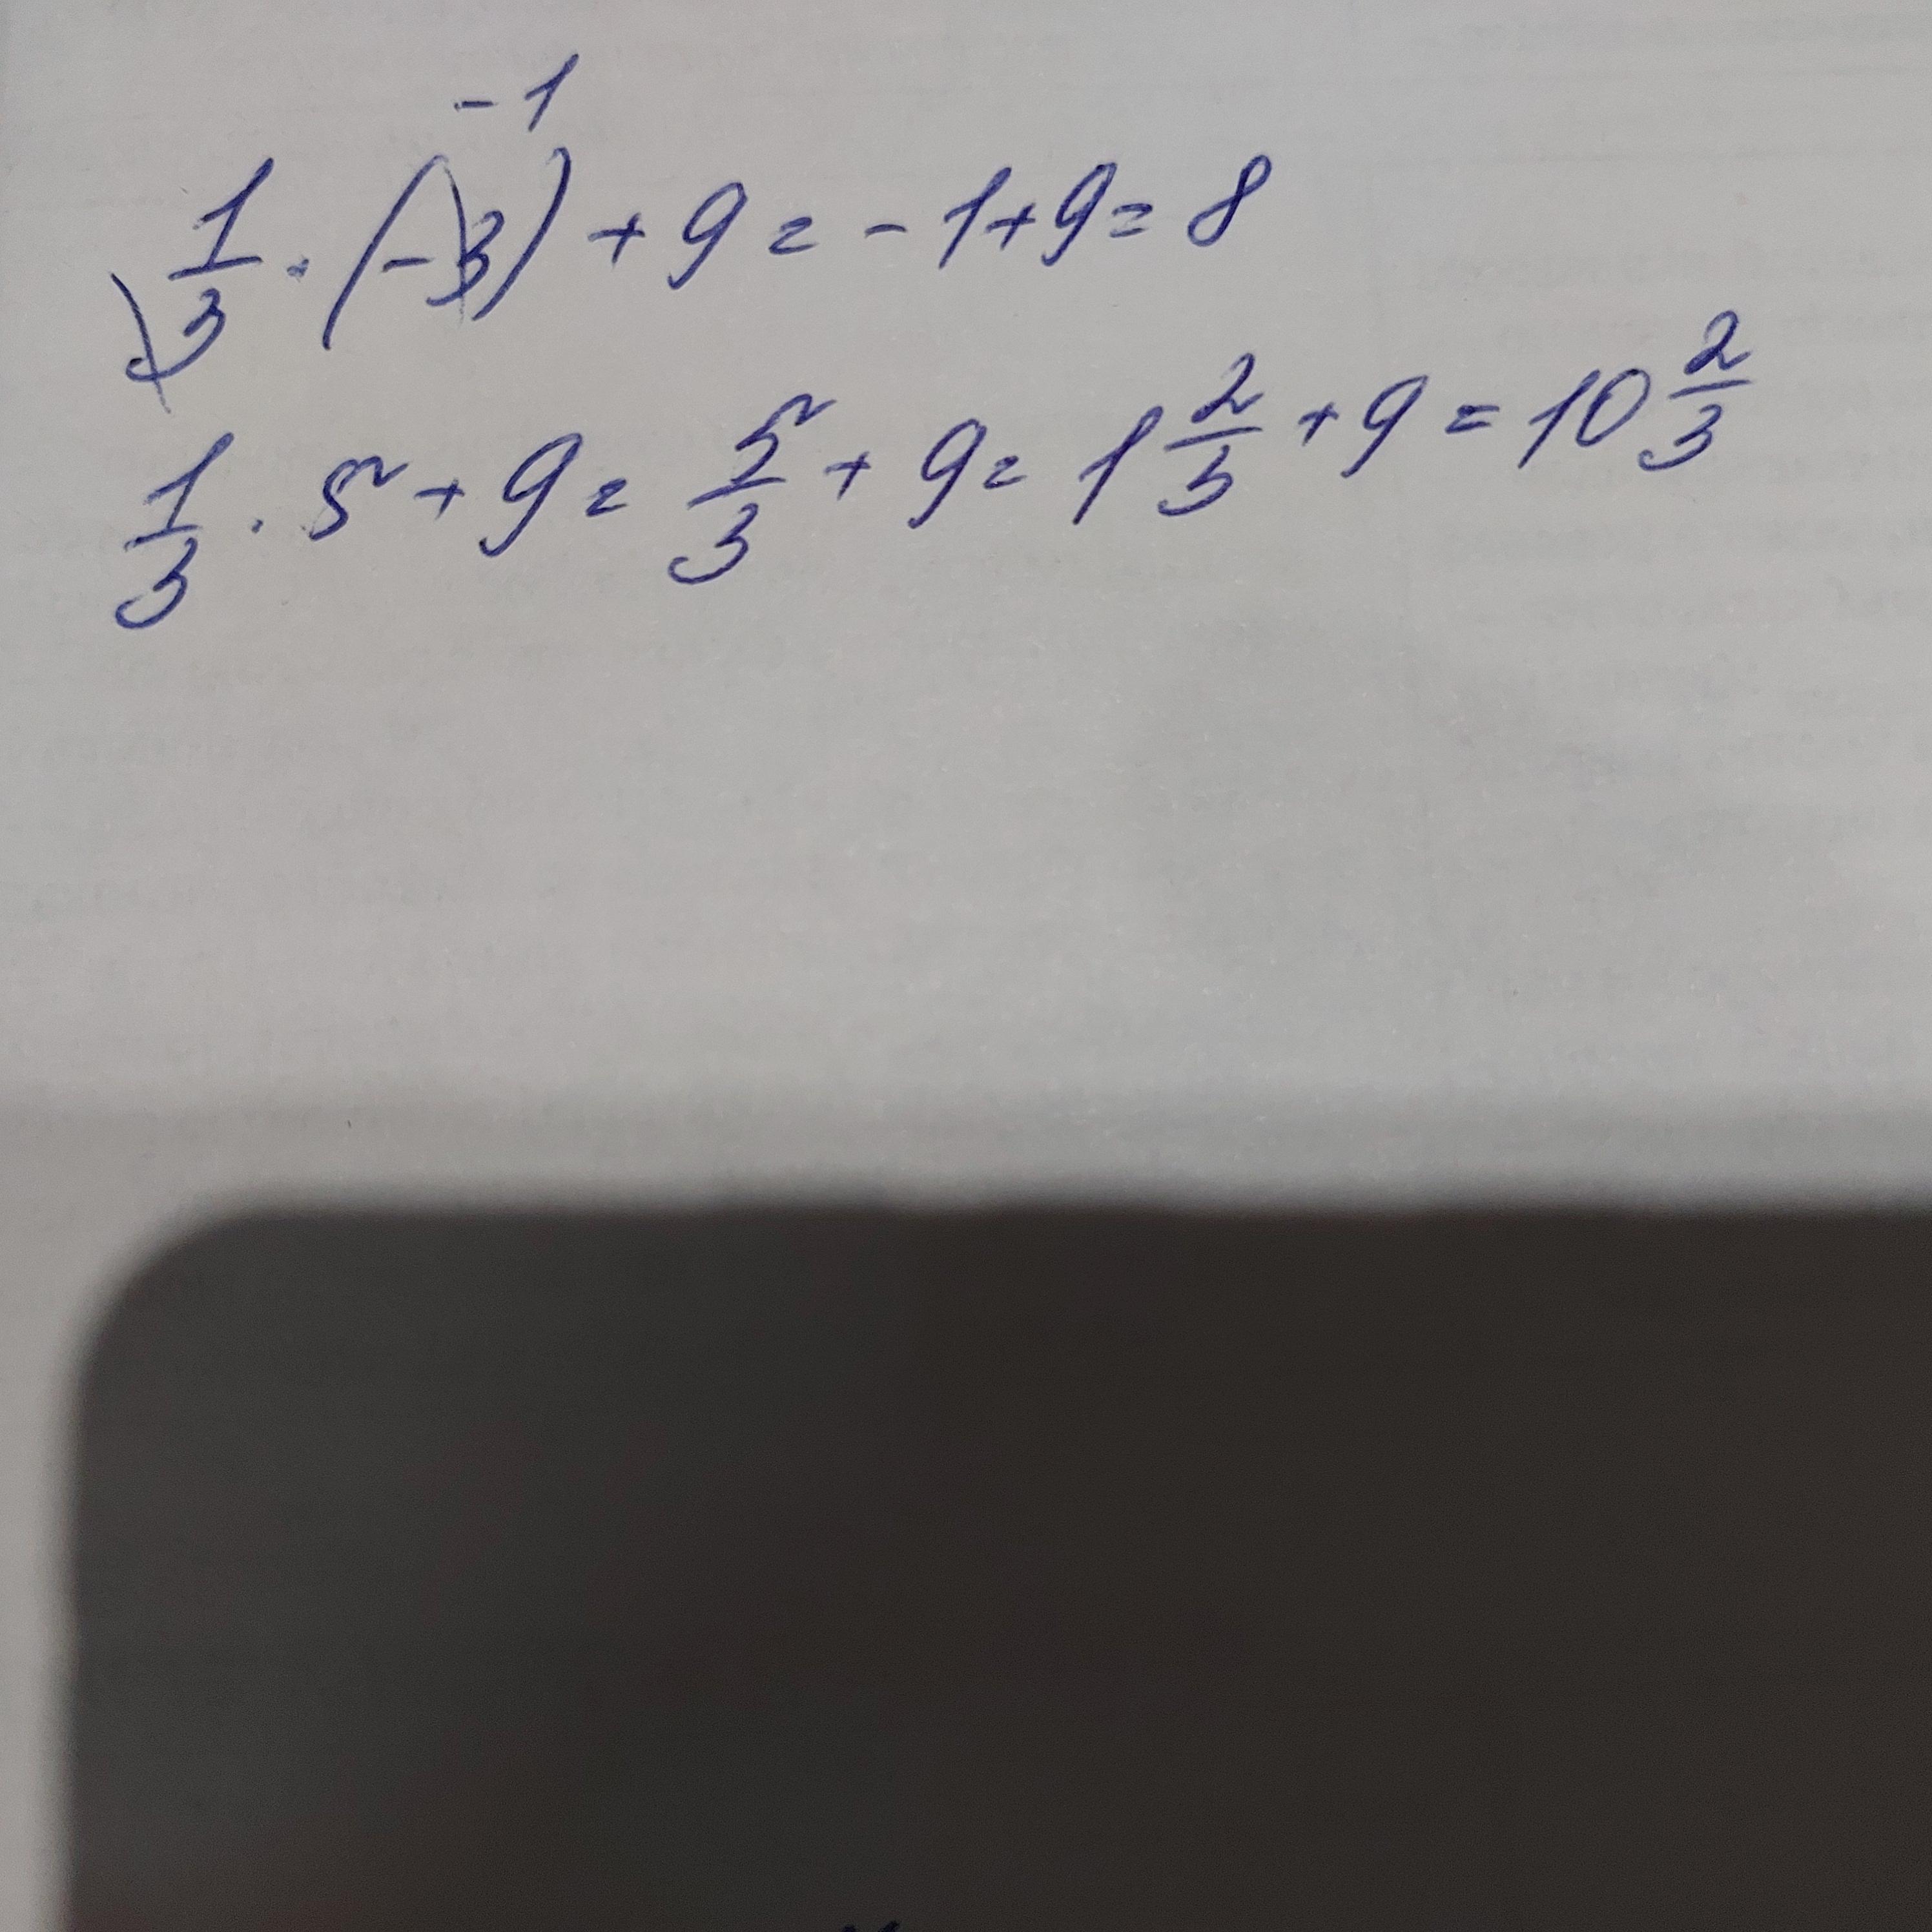 1/3 · (-3) + 9 = -1+9= 8
-1
1/3 · 5 + 9 = 5/3 + 9 = 1 2/3 + 9 = 10 2/3